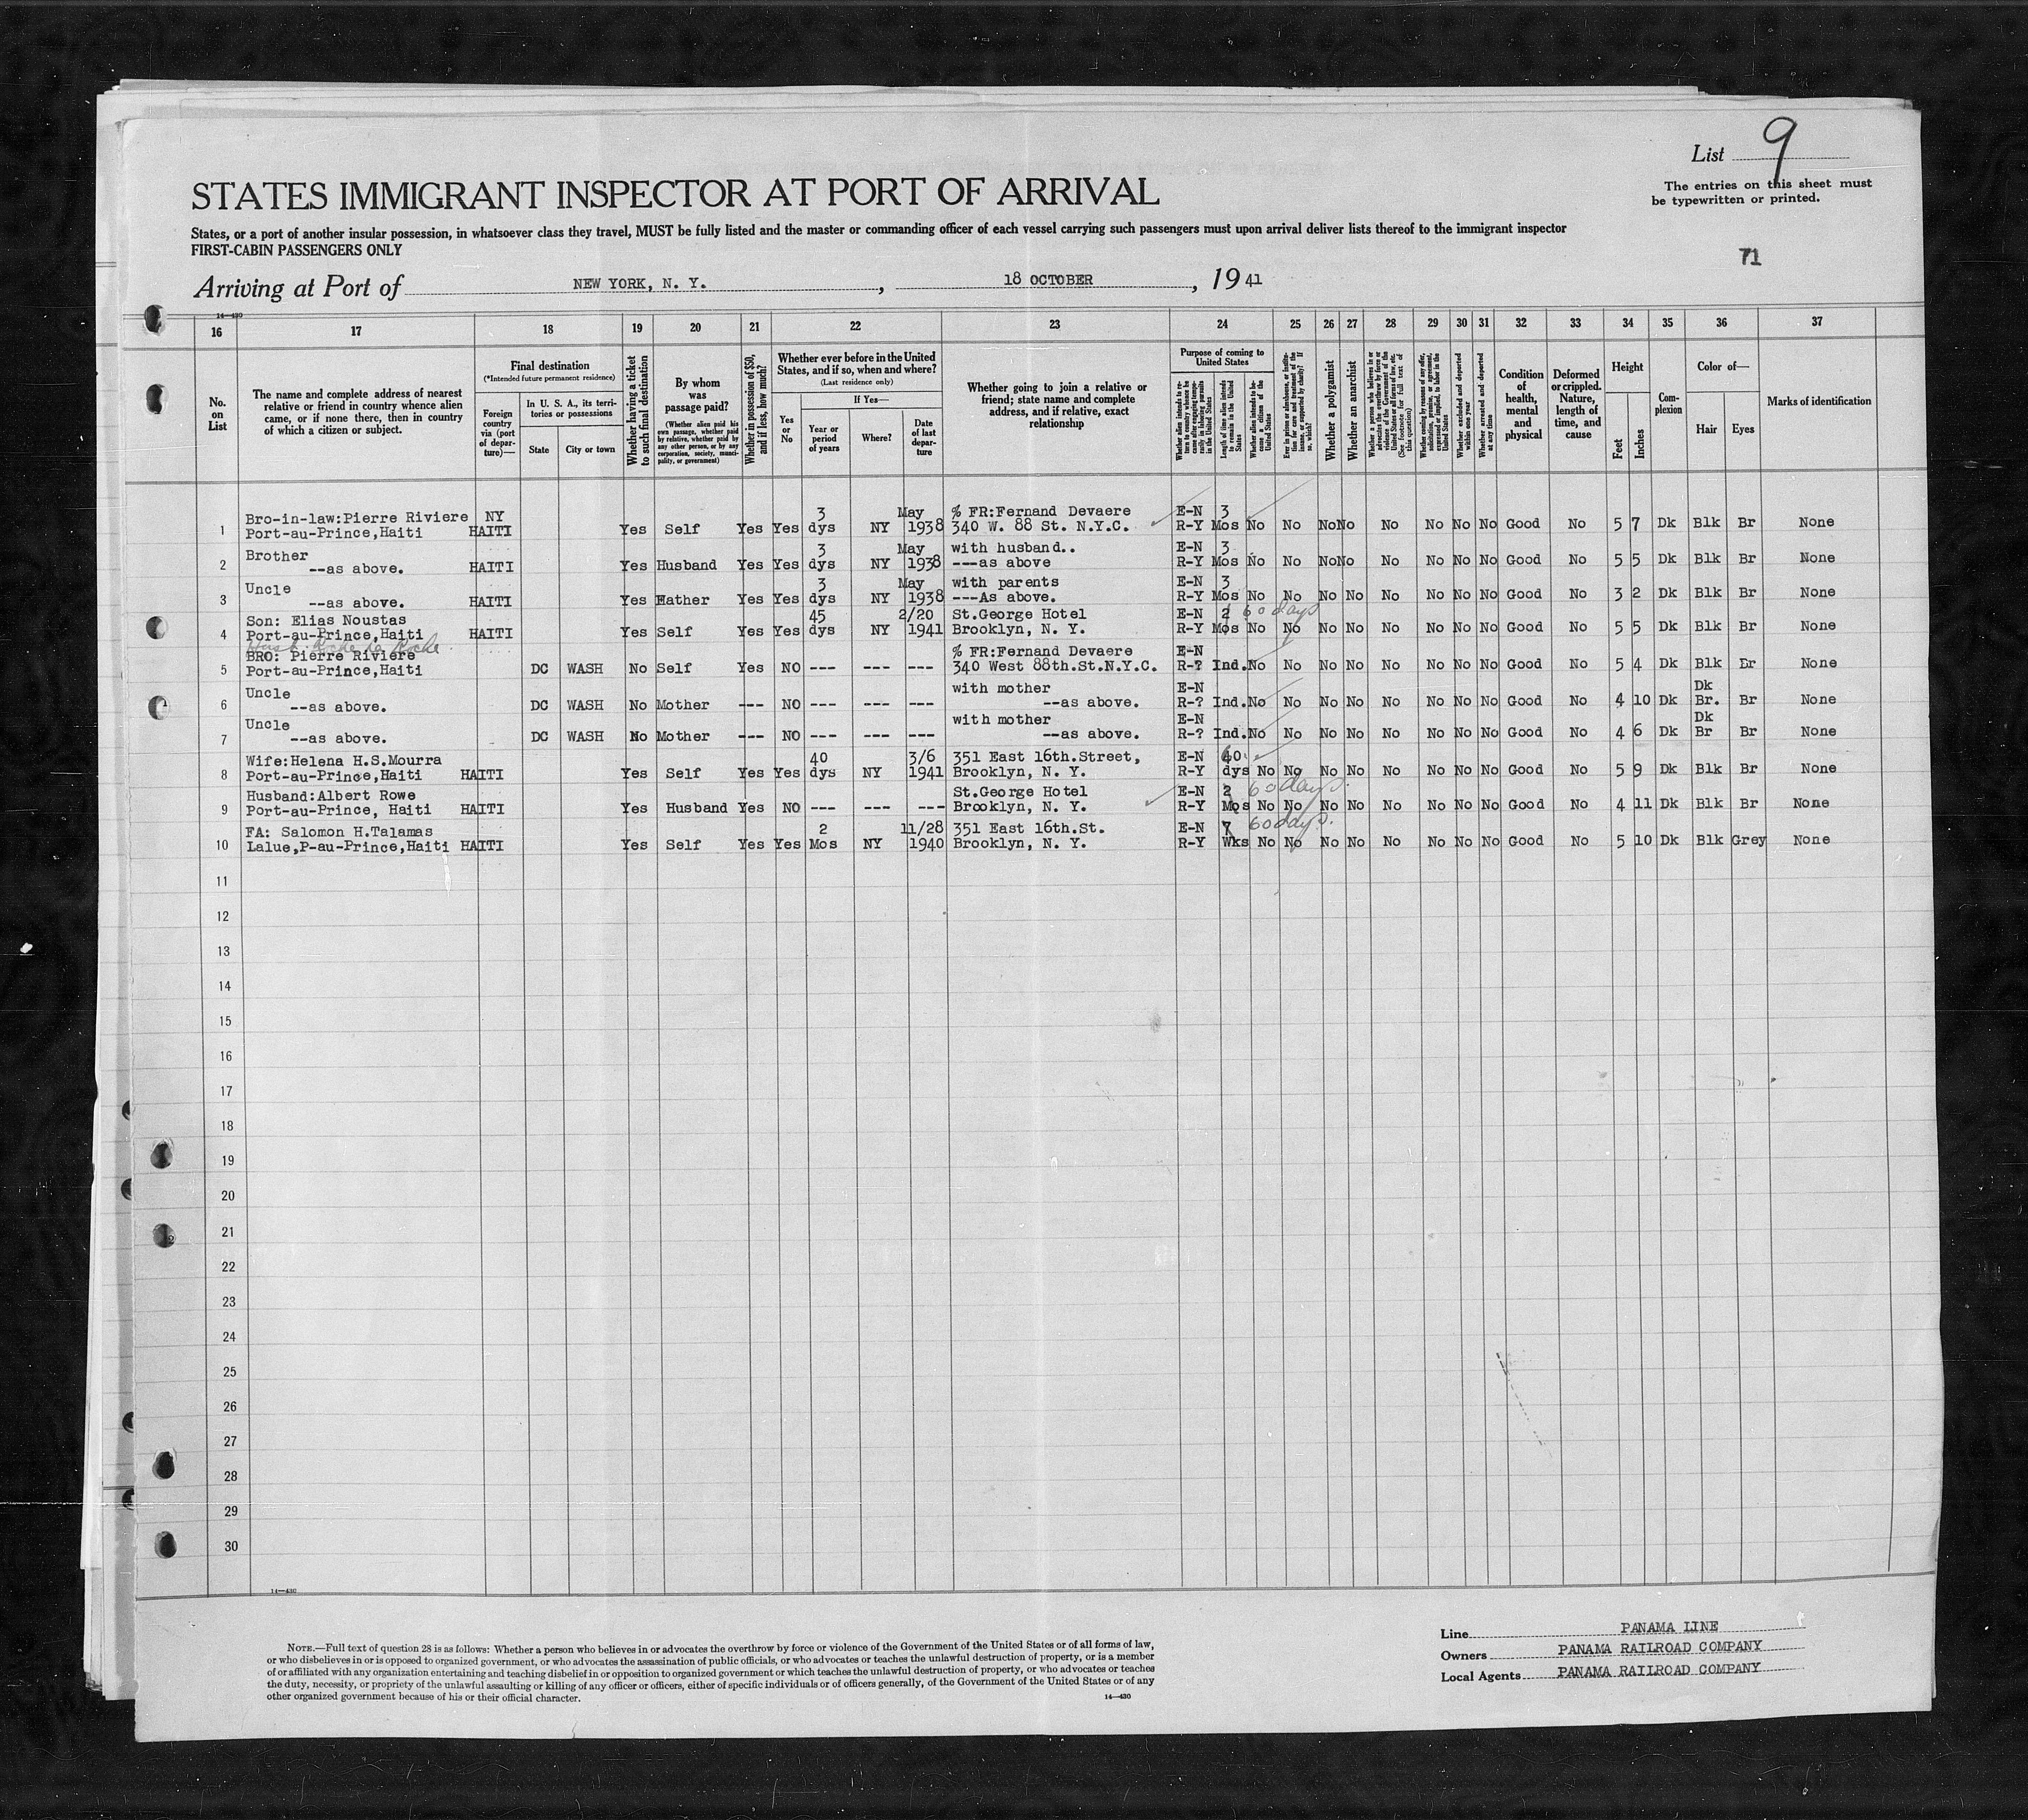 List 9
The entries on this sheet must
be typewritten or printed.
STATES IMMIGRANT INSPECTOR AT PORT OF ARRIVAL
States, or a port of another insular possession, in whatsoever class they travel, MUST be fully listed and the master or commanding officer of each vessel carrying such passengers must upon arrival deliver lists thereof to the immigrant inspector
FIRST-CABIN PASSENGERS ONLY
71
Arriving at Port of NEW YORK, N. Y. , 18 OCTOBER , 19 41
14—430
16 17 18 19 20 21 22 23 24 25 26 27 28 29 30 31 32 33 34 35 36 37
No. on List
The name and complete address of nearest relative or friend in country whence alien came, or if none there, then in country of which a citizen or subject.
Final destination
(*Intended future permanent residence)
Foreign country via (port of departure)—
In U. S. A., its territories or possessions
State
City or town
Whether having a ticket to such final destination
By whom was passage paid?
(Whether alien paid his own passage, whether paid by relative, whether paid by any other person, or by any corporation, society, municipality, or government)
Whether in possession of $50, and if less, how much?
Whether ever before in the United States, and if so, when and where?
(Last residence only)
Yes or No
If Yes—
Year or period of years
Where?
Date of last departure
Whether going to join a relative or friend; state name and complete address, and if relative, exact relationship
Purpose of coming to United States
Length of time alien intends to remain in the United States
Whether alien intends to become a citizen of the United States
Whether a polygamist
Whether an anarchist
Whether excluded and deported within one year
Whether arrested and deported at any time
Condition of health, mental and physical
Deformed or crippled. Nature, length of time, and cause
Height
Feet
Inches
Complexion
Color of—
Hair
Eyes
Marks of identification
Bro-in-law:Pierre Riviere NY 3 May % FR:Fernand Devaere E-N 3
1 Port-au-Prince,Haiti HAITI Yes Self Yes Yes dys NY 1938 340 W. 88 St. N.Y.C. R-Y Mos No No No No No No No No Good No 5 7 Dk Blk Br None
Brother 3 May with husband.. E-N 3
2 --as above. HAITI Yes Husband Yes Yes dys NY 1938 ---as above R-Y Mos No No No No No No No No Good No 5 5 Dk Blk Br None
Uncle 3 May with parents E-N 3
3 --as above. HAITI Yes Father Yes Yes dys NY 1938 ---As above. R-Y Mos No No No No No No No No Good No 3 2 Dk Blk Br None
Son: Elias Noustas 45 2/20 St.George Hotel E-N 2 60 days
4 Port-au-Prince,Haiti HAITI Yes Self Yes Yes dys NY 1941 Brooklyn, N. Y. R-Y Mos No No No No No No No No Good No 5 5 Dk Blk Br None
BRO: Pierre Riviere % FR:Fernand Devaere E-N
5 Port-au-Prince,Haiti DC WASH No Self Yes NO --- --- --- 340 West 88th.St.N.Y.C. R-? Ind. No No No No No No No No Good No 5 4 Dk Blk Br None
Uncle with mother E-N Dk
6 --as above. DC WASH No Mother --- NO --- --- --- --as above. R-? Ind. No No No No No No No No Good No 4 10 Dk Br. Br None
Uncle with mother E-N Dk
7 --as above. DC WASH No Mother --- NO --- --- --- --as above. R-? Ind. No No No No No No No No Good No 4 6 Dk Br Br None
Wife:Helena H.S.Mourra 40 3/6 351 East 16th.Street, E-N 40
8 Port-au-Prince,Haiti HAITI Yes Self Yes Yes dys NY 1941 Brooklyn, N. Y. R-Y dys No No No No No No No No Good No 5 9 Dk Blk Br None
Husband:Albert Rowe St.George Hotel E-N 2 60 days.
9 Port-au-Prince, Haiti HAITI Yes Husband Yes NO --- --- --- Brooklyn, N. Y. R-Y Mos No No No No No No No No Good No 4 11 Dk Blk Br None
FA: Salomon H.Talamas 2 11/28 351 East 16th.St. E-N 7 60 days.
10 Lalue,P-au-Prince,Haiti HAITI Yes Self Yes Yes Mos NY 1940 Brooklyn, N. Y. R-Y Wks No No No No No No No No Good No 5 10 Dk Blk Grey None
11
12
13
14
15
16
17
18
19
20
21
22
23
24
25
26
27
28
29
30
14—430
NOTE.—Full text of question 28 is as follows: Whether a person who believes in or advocates the overthrow by force or violence of the Government of the United States or of all forms of law,
or who disbelieves in or is opposed to organized government, or who advocates the assassination of public officials, or who advocates or teaches the unlawful destruction of property, or is a member
of or affiliated with any organization entertaining and teaching disbelief in or opposition to organized government or which teaches the unlawful destruction of property, or who advocates or teaches
the duty, necessity, or propriety of the unlawful assaulting or killing of any officer or officers, either of specific individuals or of officers generally, of the Government of the United States or of any
other organized government because of his or their official character.
14—430
Line PANAMA LINE
Owners PANAMA RAILROAD COMPANY
Local Agents PANAMA RAILROAD COMPANY